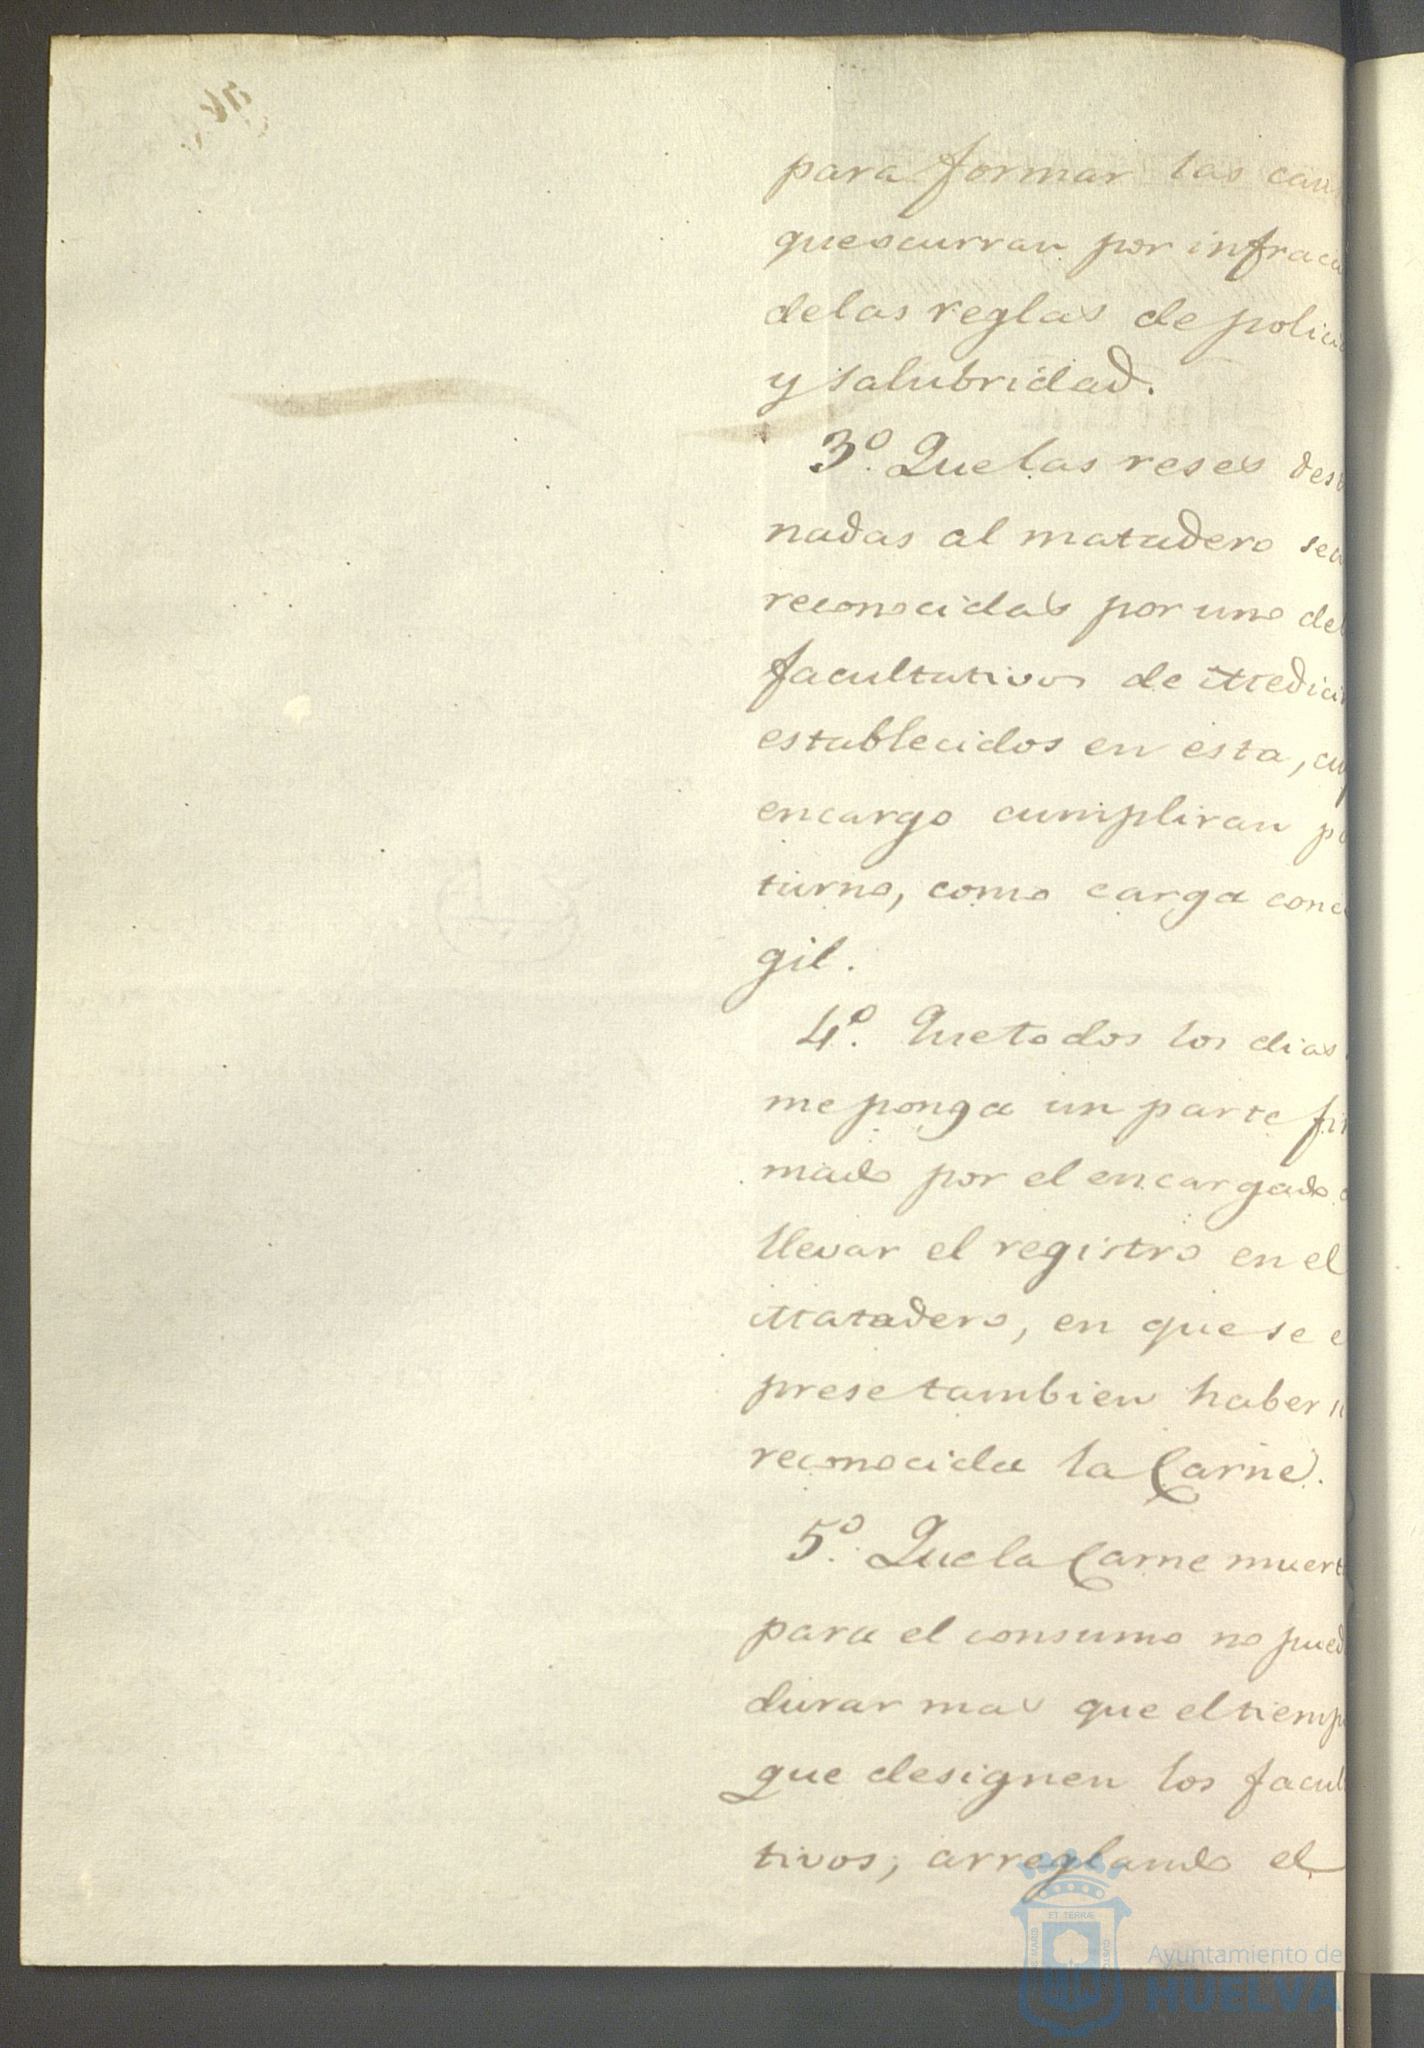 para formar las cau
que ocurran por infracci
de las reglas de polici
y salubridad.
3º. Que las reses des
nadas al matadero sea
reconocidas por uno de
facultativos de Medici
establecidos en esta, cu
encargo cumpliran p
turno, como carga conc
gil.
4º. Que todos los dias
me ponga un parte fir
mado por el encargado
llevar el registro en el
Matadero, en que se e
prese tambien haber
reconocida la Carne.
5º. Que la Carne muert
para el consumo no pued
durar mas que el tiemp
que designen los facul
tivos, arreglando el
ET TERRÆ
MARIS
CUSTOS
Ayuntamiento de
HUELVA